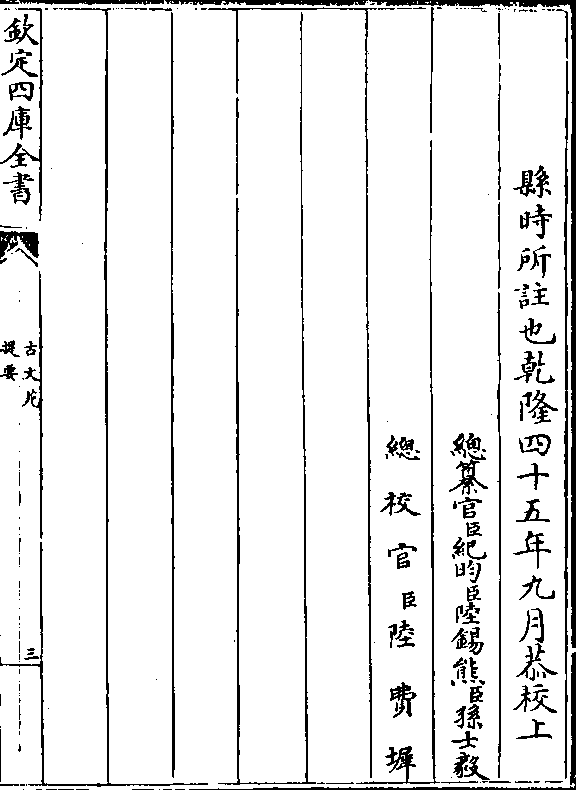 縣時所註也乾隆四十五年九月恭校上
總纂官臣紀昀臣陸錫熊臣孫士毅
總校官臣陸費墀
欽定四庫全書
古文苑
提要
三